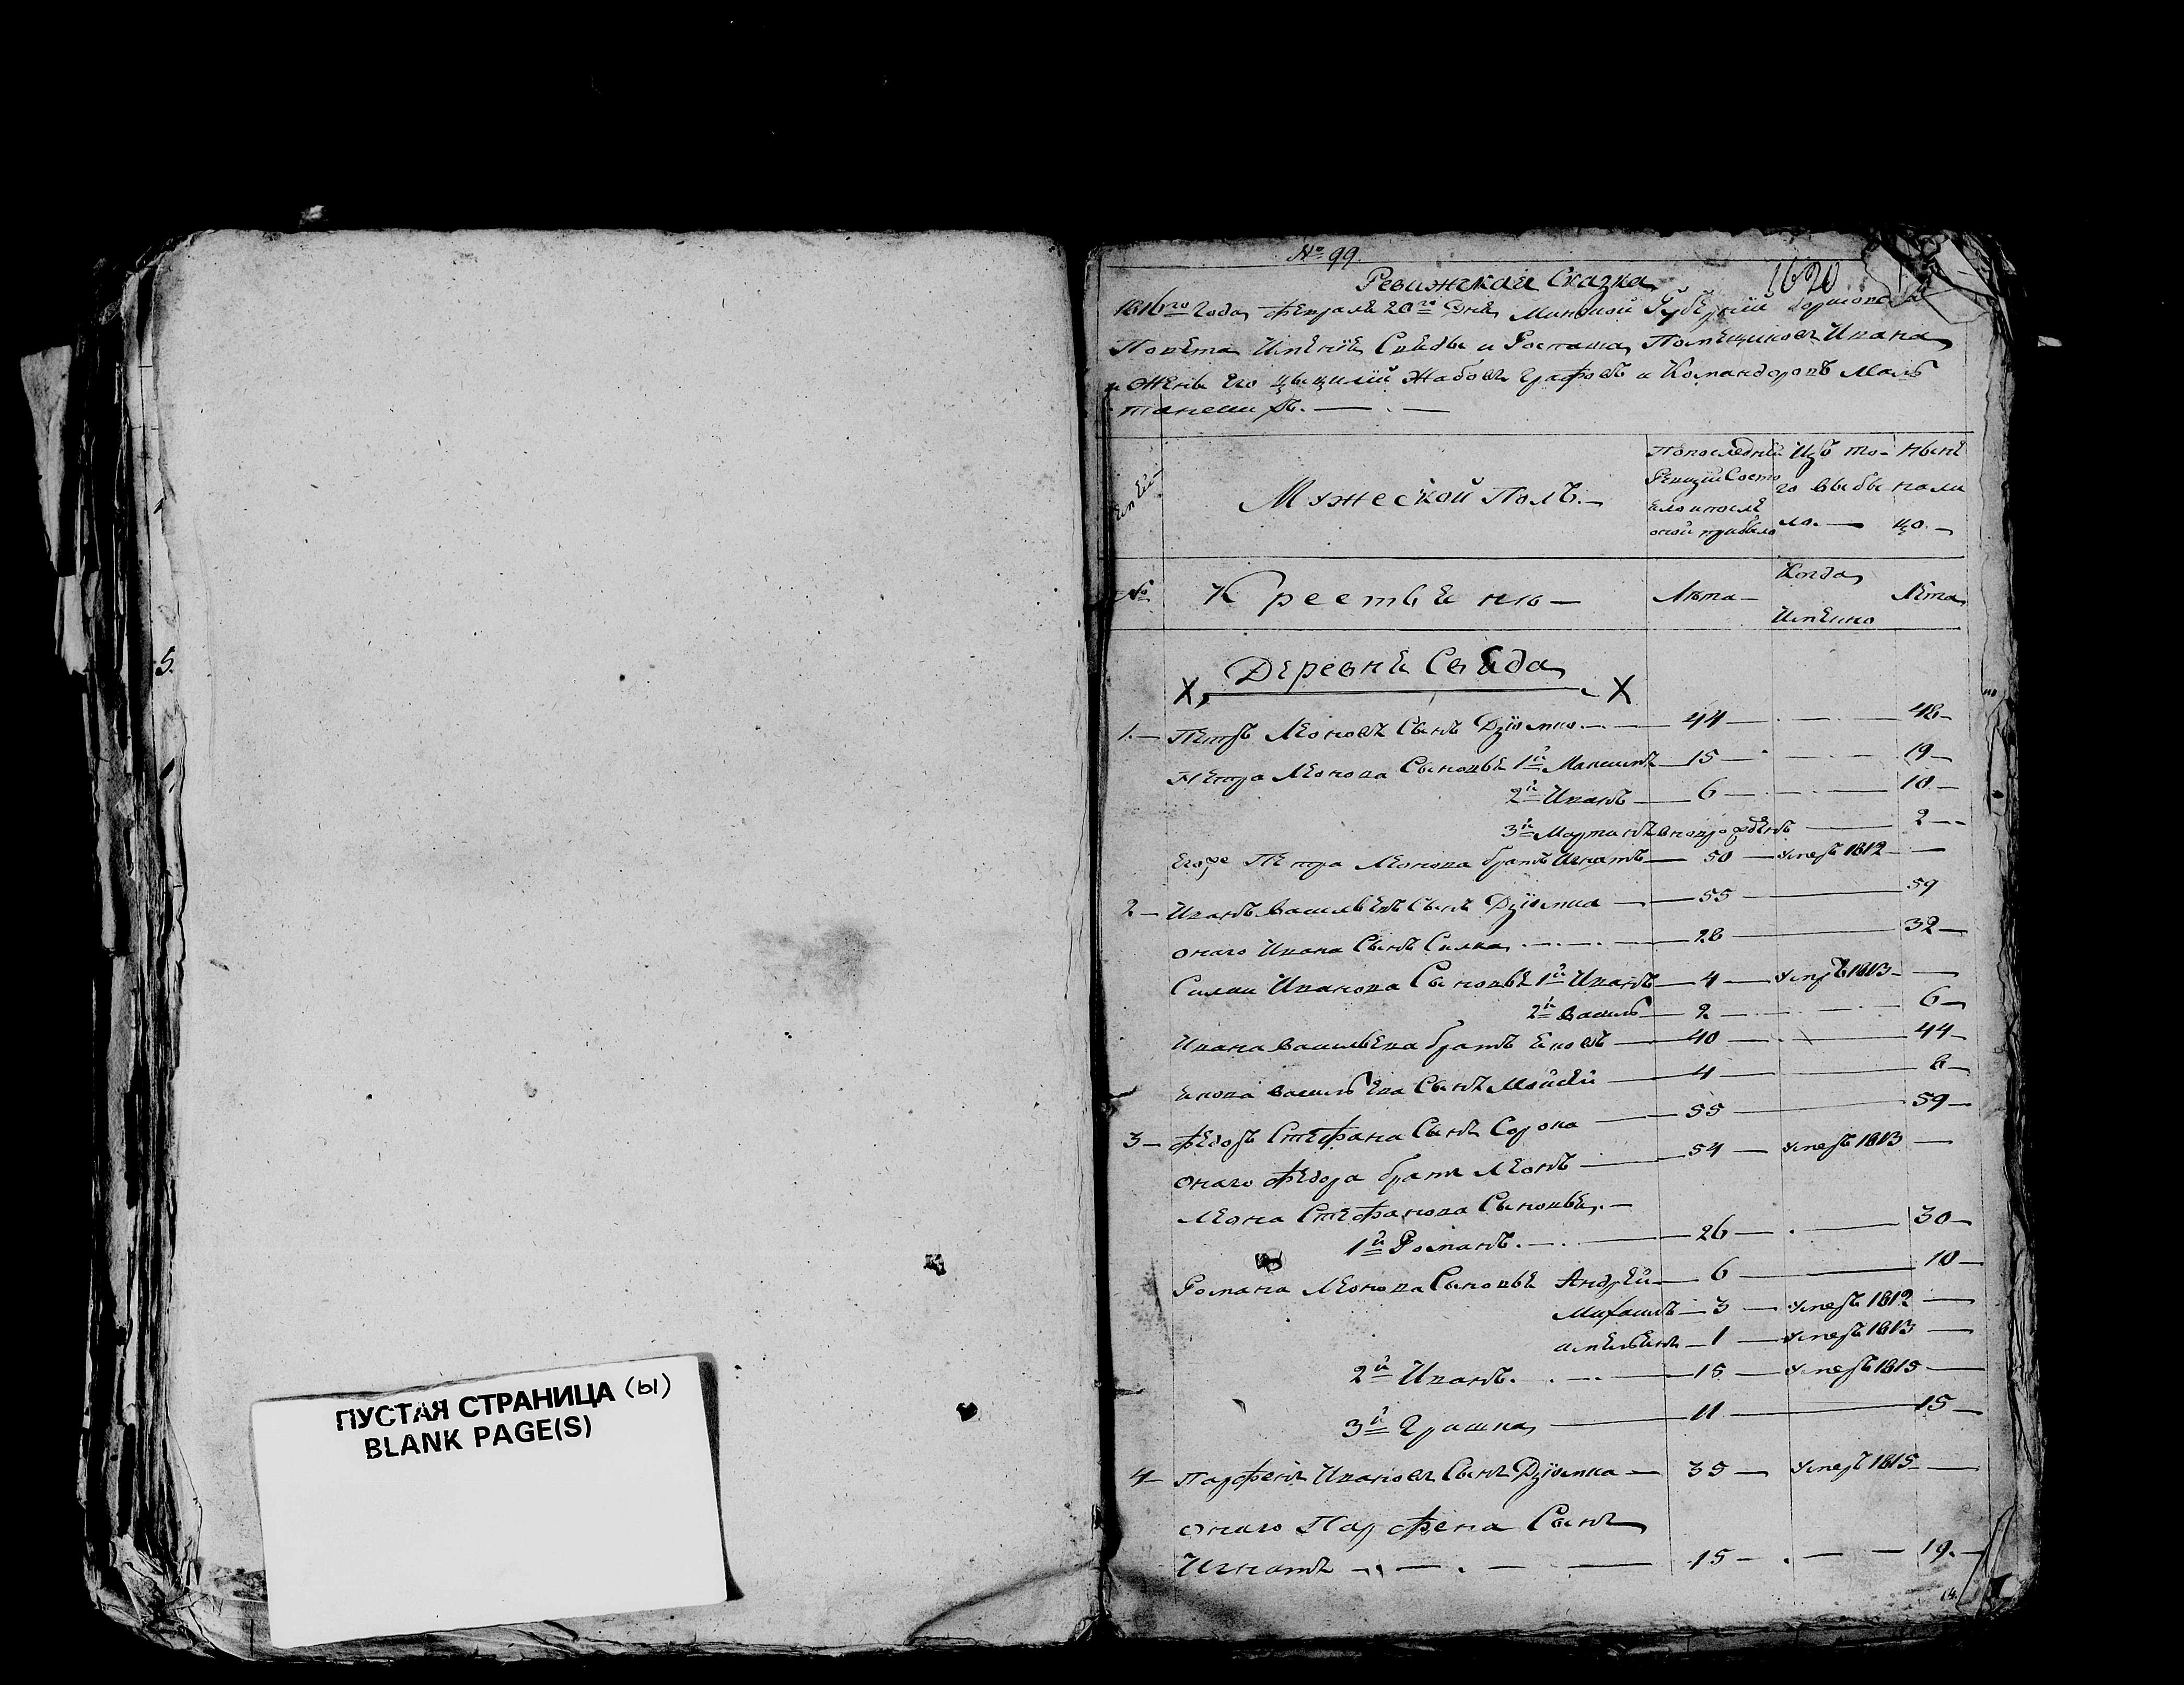 5.
ПУСТАЯ СТРАНИЦА (ы)
BLANK PAGE(S)
№ 99.
Ревижская Сказка
1620
1816го Года Февраля 20го Дня Минской Губернiй Борисовска
Повета Имѣнiе Свяды и Росташа Помещиковъ Ивана
и жены его Цыцилiй Жабовъ Графовъ и Командоровъ Маль
танскихъ. — . —
Мужеской Полъ. —
Попоследней Ревизiи Состо яло и после оной прибыло
Изъ то- го выбы ло. —
Ныне нали цо. —
№
Крестьяне —
Лѣта —
Когда Имянно
Лета
Деревня Свяда
Х Х
1. — Петръ Леоновъ Сынъ Дзiомко — 44 — 48 —
Петра Леонова Сыновья 1й Максимъ — 15 — 19 —
2й Иванъ — 6 — 10 —
3й Мартинъ вновь рожденъ — 2 —
Петра Леонова братъ Игнатъ — 50 — умеръ 1812 —
2 — Иванъ Васильевъ Сынъ Дзiомка — 55 — 59
онаго Ивана Сынъ Силка — 28 — 32 —
Силки Иванова Сыновья 1й Иванъ — 4 — умеръ 1813 —
2й Василь — 2 — 6 —
Ивана Васильева братъ Яковъ — 40 — 44 —
Якова Васильева Сынъ Мойсей — 4 — 8 —
3 — Федоръ Стефана Сынъ Сорока — 55 — 59 —
онаго Федора братъ Леонъ — 54 — умеръ 1813 —
Леона Стефанова Сыновья. —
1й Романъ. — 26 — 30 —
Романа Леонова Сыновья Андрей — 6 — 10 —
Михаилъ — 3 — умеръ 1812 —
Амельянъ — 1 — умеръ 1813 —
2й Иванъ. — 18 — умеръ 1815 —
3й Гришка — 11 — 15 —
4 — Парфенъ Ивановъ Сынъ Дзiомка — 35 — умеръ 1815 —
онаго Парфена Сынъ
Игнатъ — 15 — 19. —